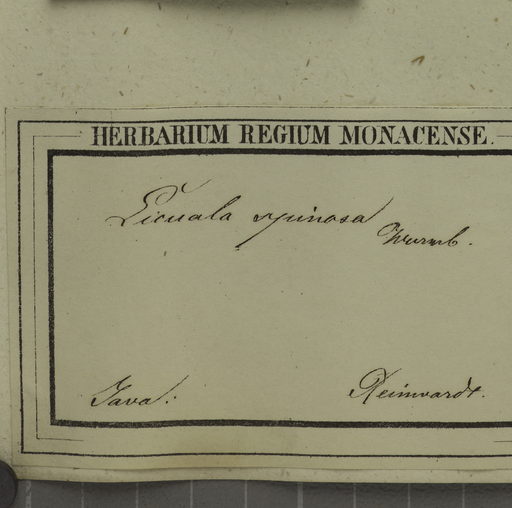 HERBARIUM REGIUM MONACENSE.
Licuala spinosa
Wurmb.
Java. Reinwardt.